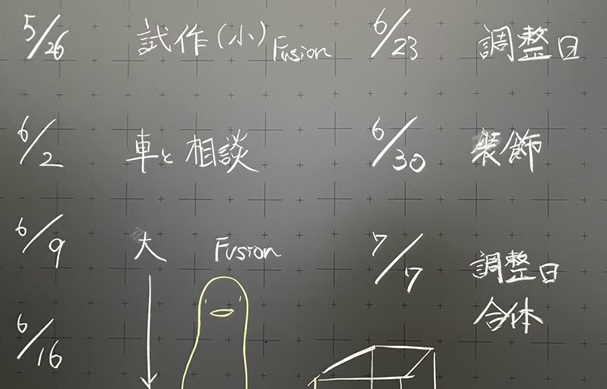 5/26 試作(小) Fusion
6/2 車と相談
6/9 大 Fusion
6/16
6/23 調整日
6/30 装飾
7/7 調整日
合体